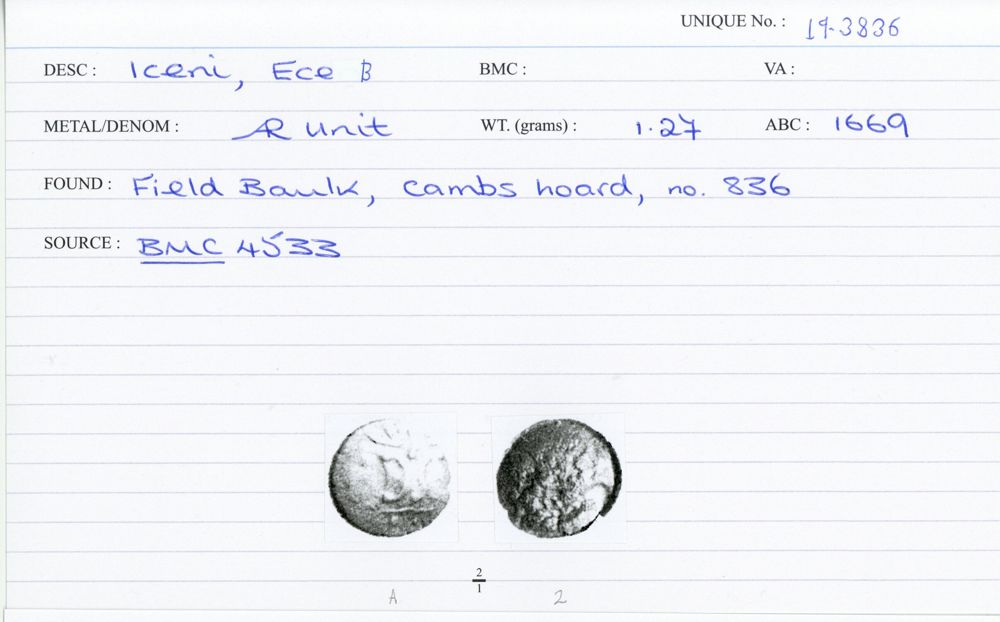 UNIQUE No. : 19-3836
DESC : Iceni, Ece B BMC : VA :
METAL/DENOM : AR unit WT. (grams) : 1.27 ABC : 1669
FOUND : Field Baulk, Cambs hoard, no. 836
SOURCE : BMC 4533
2
1
A 2